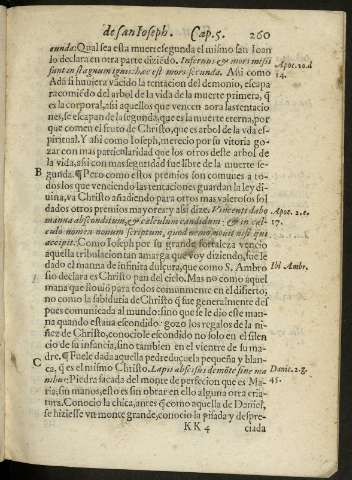 de san Ioseph. Cap. 5. 260
cunda: Qual sea esta muerte segunda el mismo san Ioan
lo declara en otra parte diziẽdo. Infernus & mors missi
sunt in stagnum ignis: hæc est mors secunda. Assi como
Adã si huuiera vẽcido la tentacion del demonio, escapa
ra comiẽdo del arbol de la vida de la muerte primera, q̃
es la corporal, assi aquellos que vencen aora las tentacio
nes, se escapan de la segunda, que es la muerte eterna, por
que comen el fruto de Christo, que es arbol de la vida es-
piritual. Y assi como Ioseph, merecio por su vitoria go-
zar con mas particularidad que los otros deste arbol de
la vida, assi con mas seguridad fue libre de la muerte se-
gunda. ¶ Pero como estos premios son comunes a to-
dos los que venciendo las tentaciones guardan la ley di-
uina, va Christo añadiendo para otros mas valerosos sol
dados otros premios mayores y assi dize. Vincenti dabo
manna absconditum, & calculum candidum: & in cal-
culo nomen nouum scriptum, quod nemo nouit nisi qui
accipit. Como Ioseph por su grande fortaleza vencio
aquella tribulacion tan amarga que voy diziendo, fuele
dado el manna de infinita dulçura, que como S. Ambro
sio declara es Christo pan del cielo. Mas no como aquel
mana que llouio para todos comunmente en el disierto,
no como la sabiduria de Christo q̃ fue generalmente des
pues comunicada al mundo: sino que se le dio este man-
na quando estaua escondido. gozo los regalos de la ni-
ñez de Christo, conociole escondido no solo en el silen
cio de su infancia, sino tambien en el vientre de su ma-
dre. ¶ Fuele dada aquella pedreçuela pequeña y blan-
ca, q̃ es el mismo Christo. Lapis abscisus de mõte sine ma
nibus: Piedra sacada del monte de perfecion que es Ma-
ria, sin manos, esto es sin obrar en ello alguna otra cria-
tura. Conocio la chica, antes q̃ como aquella de Daniel,
se hiziesse vn monte grande, conocio la pisada y despre-
KK 4 ciada
Apoc. 20. d
14.
B
Apoc. 2. c.
17.
Ibi Ambr.
C
Danie. 2. g.
45.